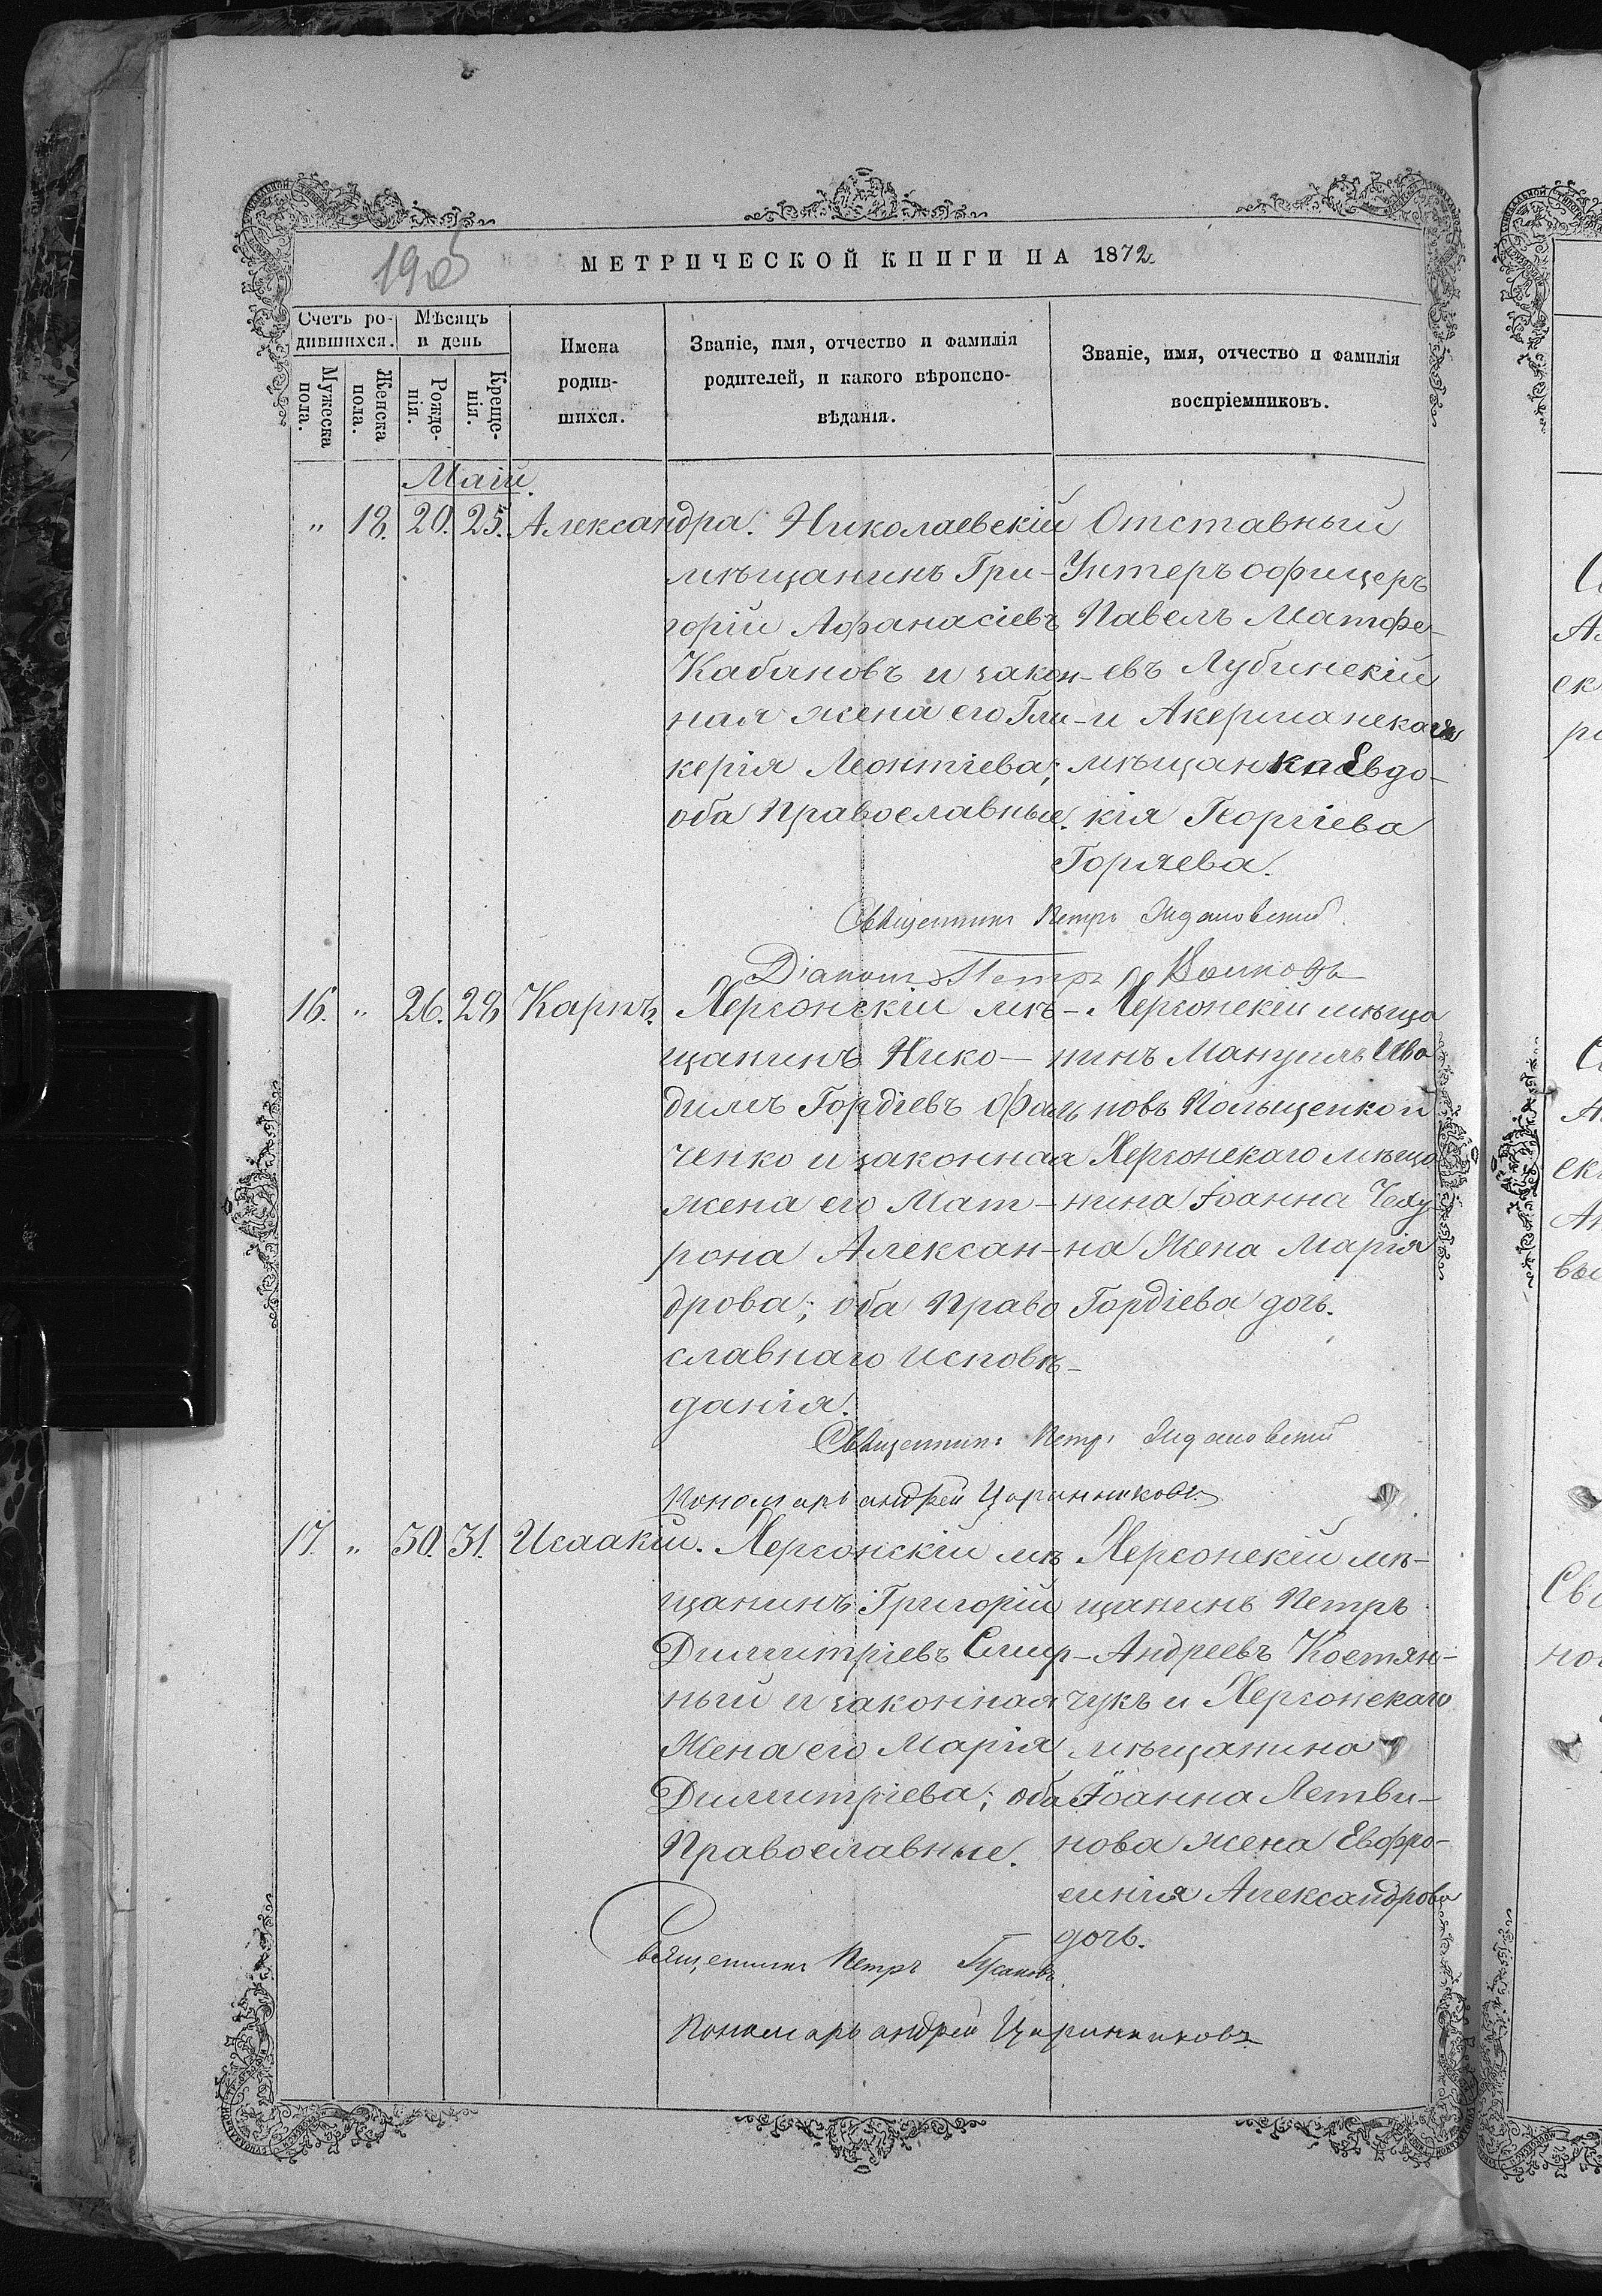 МЕТРИЧЕСКОЙ КНИГИ НА 1872
Счетъ ро-
дившихся.
Мѣсяцъ
и день
Мужеска
пола.
Женска
пола.
Рожде-
нія.
Креще-
нія.
Имена
родив-
шихся.
Званіе, имя, отчество и фамилія
родителей, и какого вѣроиспо-
вѣданія.
Званіе, имя, отчество и фамилія
воспріемниковъ.
Маій.
" 18. 20. 25. Александра.
Николаевскій
мѣщанинъ Гри-
горій Афанасіевъ
Кабановъ и закон-
ная жена его Гли-
керія Леонтіева;
оба Православные.
Отставный
Унтеръ офицеръ
Павелъ Матфе-
евъ Лубинскій
и Акерманская
мѣщанка Евдо-
кія Георгіева
Горяева.
Священникъ Петръ
Діаконъ Петръ Волковъ
16. " 26. 28. Карпъ.
Херсонскій мѣ-
щанинъ Нико-
димъ Гордіевъ Фоль
ченко и законная
жена его Мат-
рона Алексан-
дрова; оба Право
славнаго исповѣ-
данія.
Херсонскій мѣща
нинъ Мануилъ Ива
новъ Польщенко и
Херсонскаго мѣща
нина Іоанна
на Жена Марія
Гордіева дочь.
Священникъ Петръ
Пономарь андрей Царинниковъ.
17. " 30. 31. Исаакій.
Херсонскій мѣ
щанинъ Григорій
Димитріевъ Смир-
ный и законная
Жена его Марія
Димитріева; оба
Православные.
Херсонскій мѣ-
щанинъ Петръ
Андреевъ Костян-
чукъ и Херсонскаго
мѣщанина
Іоанна Летви-
нова жена Евфро-
синія Александрова
дочь.
Священникъ Петръ Гусаковъ.
Пономарь андрей Царинниковъ